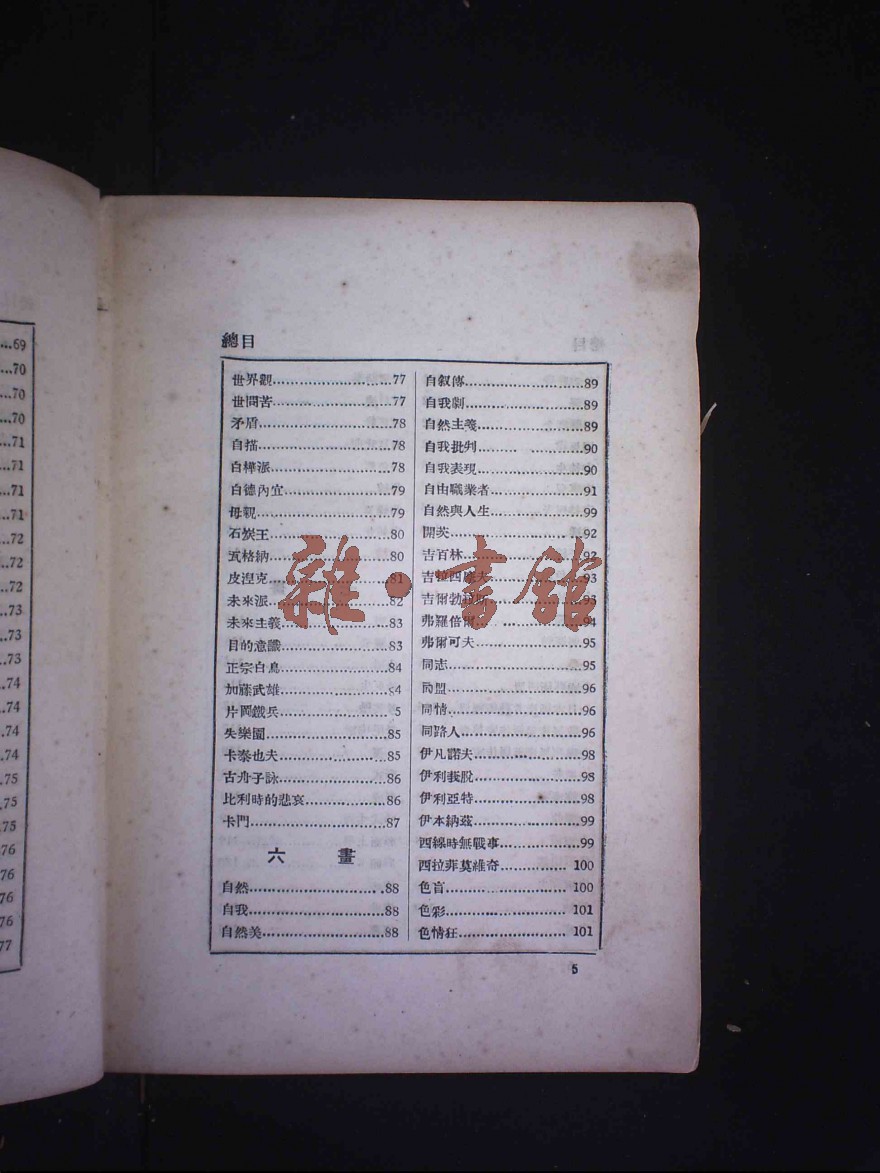 ...69
...70
...70
...70
...71
...71
...71
...71
...72
...72
...72
...73
...73
...73
...74
...74
...74
...74
...75
...75
...75
...76
...76
...76
...76
...77
總目
世界觀...77
世間苦...77
矛盾...78
自描...78
白樺派...78
白德內宜...79
母親...79
石炭王...80
瓦格納...80
皮涅克...81
未來派...82
未來主義...83
目的意識...83
正宗白鳥...84
加藤武雄...84
片岡鐵兵...5
失樂園...85
卡泰也夫...85
古舟子詠...86
比利時的悲哀...86
卡門...87
六 畫
自然...88
自我...88
自然美...88
自叙傳...89
自我劇...89
自然主義...89
自我批判...90
自我表現...90
自由職業者...91
自然與人生...99
開茨...92
吉百林...92
吉拉四德夫...93
吉爾勃...93
弗羅倍爾...94
弗爾可夫...95
同志...95
同盟...96
同情...96
同路人...96
伊凡諾夫...98
伊利...脫...98
伊利亞特...98
伊本納茲...99
西線時無戰事...99
西拉菲莫維奇...100
色盲...100
色彩...101
色情狂...101
5
雜·書館